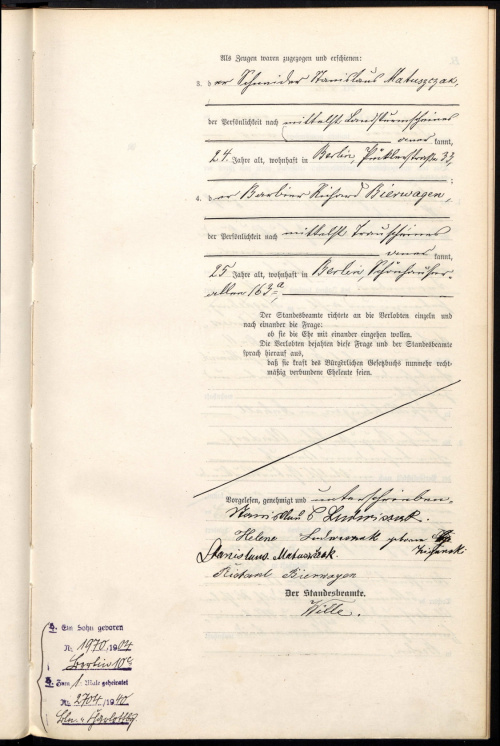 Als Zeugen waren zugezogen und erschienen:
3. der Schneider Stanislaus Matuszczak,
der Persönlichkeit nach mittelst Landsturmscheines
aner kannt,
24 Jahre alt, wohnhaft in Berlin, Pücklerstraße 33,
;
4. der Barbier Richard Bierwagen,
der Persönlichkeit nach mittelst Trauscheines
aner kannt,
25 Jahre alt, wohnhaft in Berlin, Schönhauser-
allee 163a,
Der Standesbeamte richtete an die Verlobten einzeln und
nach einander die Frage:
ob sie die Ehe mit einander eingehen wollen.
Die Verlobten bejahten diese Frage und der Standesbeamte
sprach hierauf aus,
daß sie kraft des Bürgerlichen Gesetzbuchs nunmehr recht-
mäßig verbundene Eheleute seien.
Vorgelesen, genehmigt und unterschrieben.
Stanislaus Ludwiczak.
Helene Ludwiczak geborne
Stanislaus Matuszczak.
Richard Bierwagen
Der Standesbeamte.
Wille.
Ein Sohn geboren
Nr. 1970/1904
Berlin 10c
Zum 1. Male geheiratet
Nr. 2704/1940
Bln.-Charlottbg